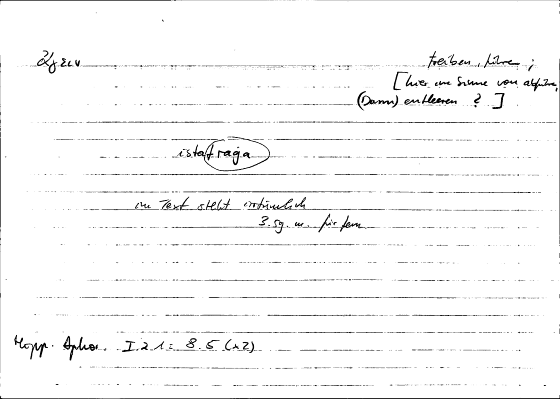 ἄγειν
treiben, führe ;
[hier im Sinne von abführe,
(Darm) entleeren ? ]
istafraġa
im Text steht irrtümlich
3. sg. m. für fem
Hipp. Aphor. I 21 = 8.5 (x2)